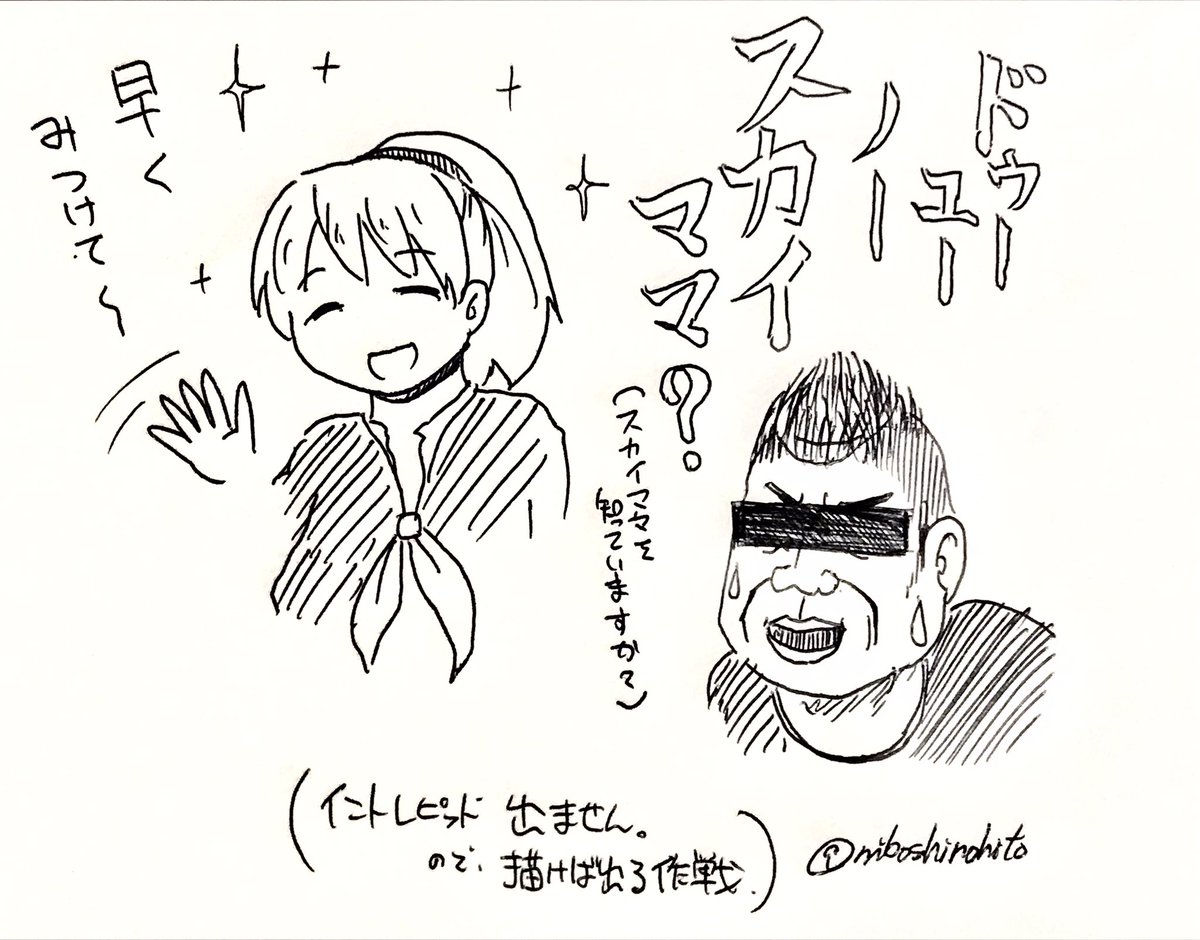 ドゥー
ユー
ノー
スカイ
ママ?
(スカイママを
知っていますか?)
早く
みつけて〜
(イントレピッド 出ません。
ので、描けば出る作戦.)
@niboshinohito